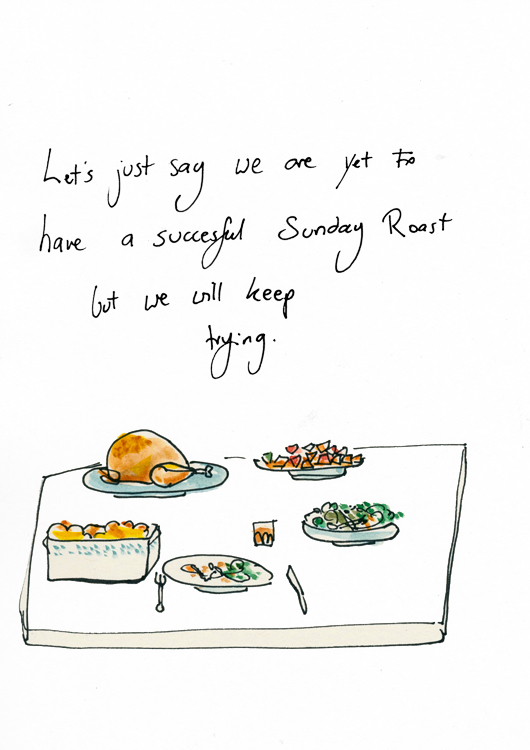 Let's just say we are yet to
have a succesful Sunday Roast
but we will keep
trying.